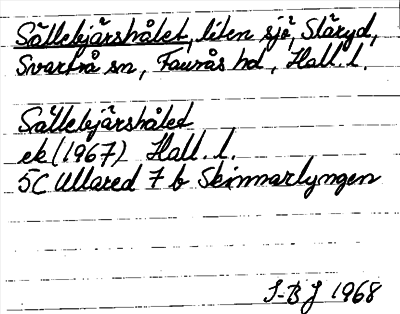 Sällebjärshålet, liten sjö, Släryd,
Svartrå sn, Faurås hd, Hall. l.
Sällebjärshålet
ek (1967) Hall. l.
5C Ullared 7 b Skinnarlyngen
S-B J 1968